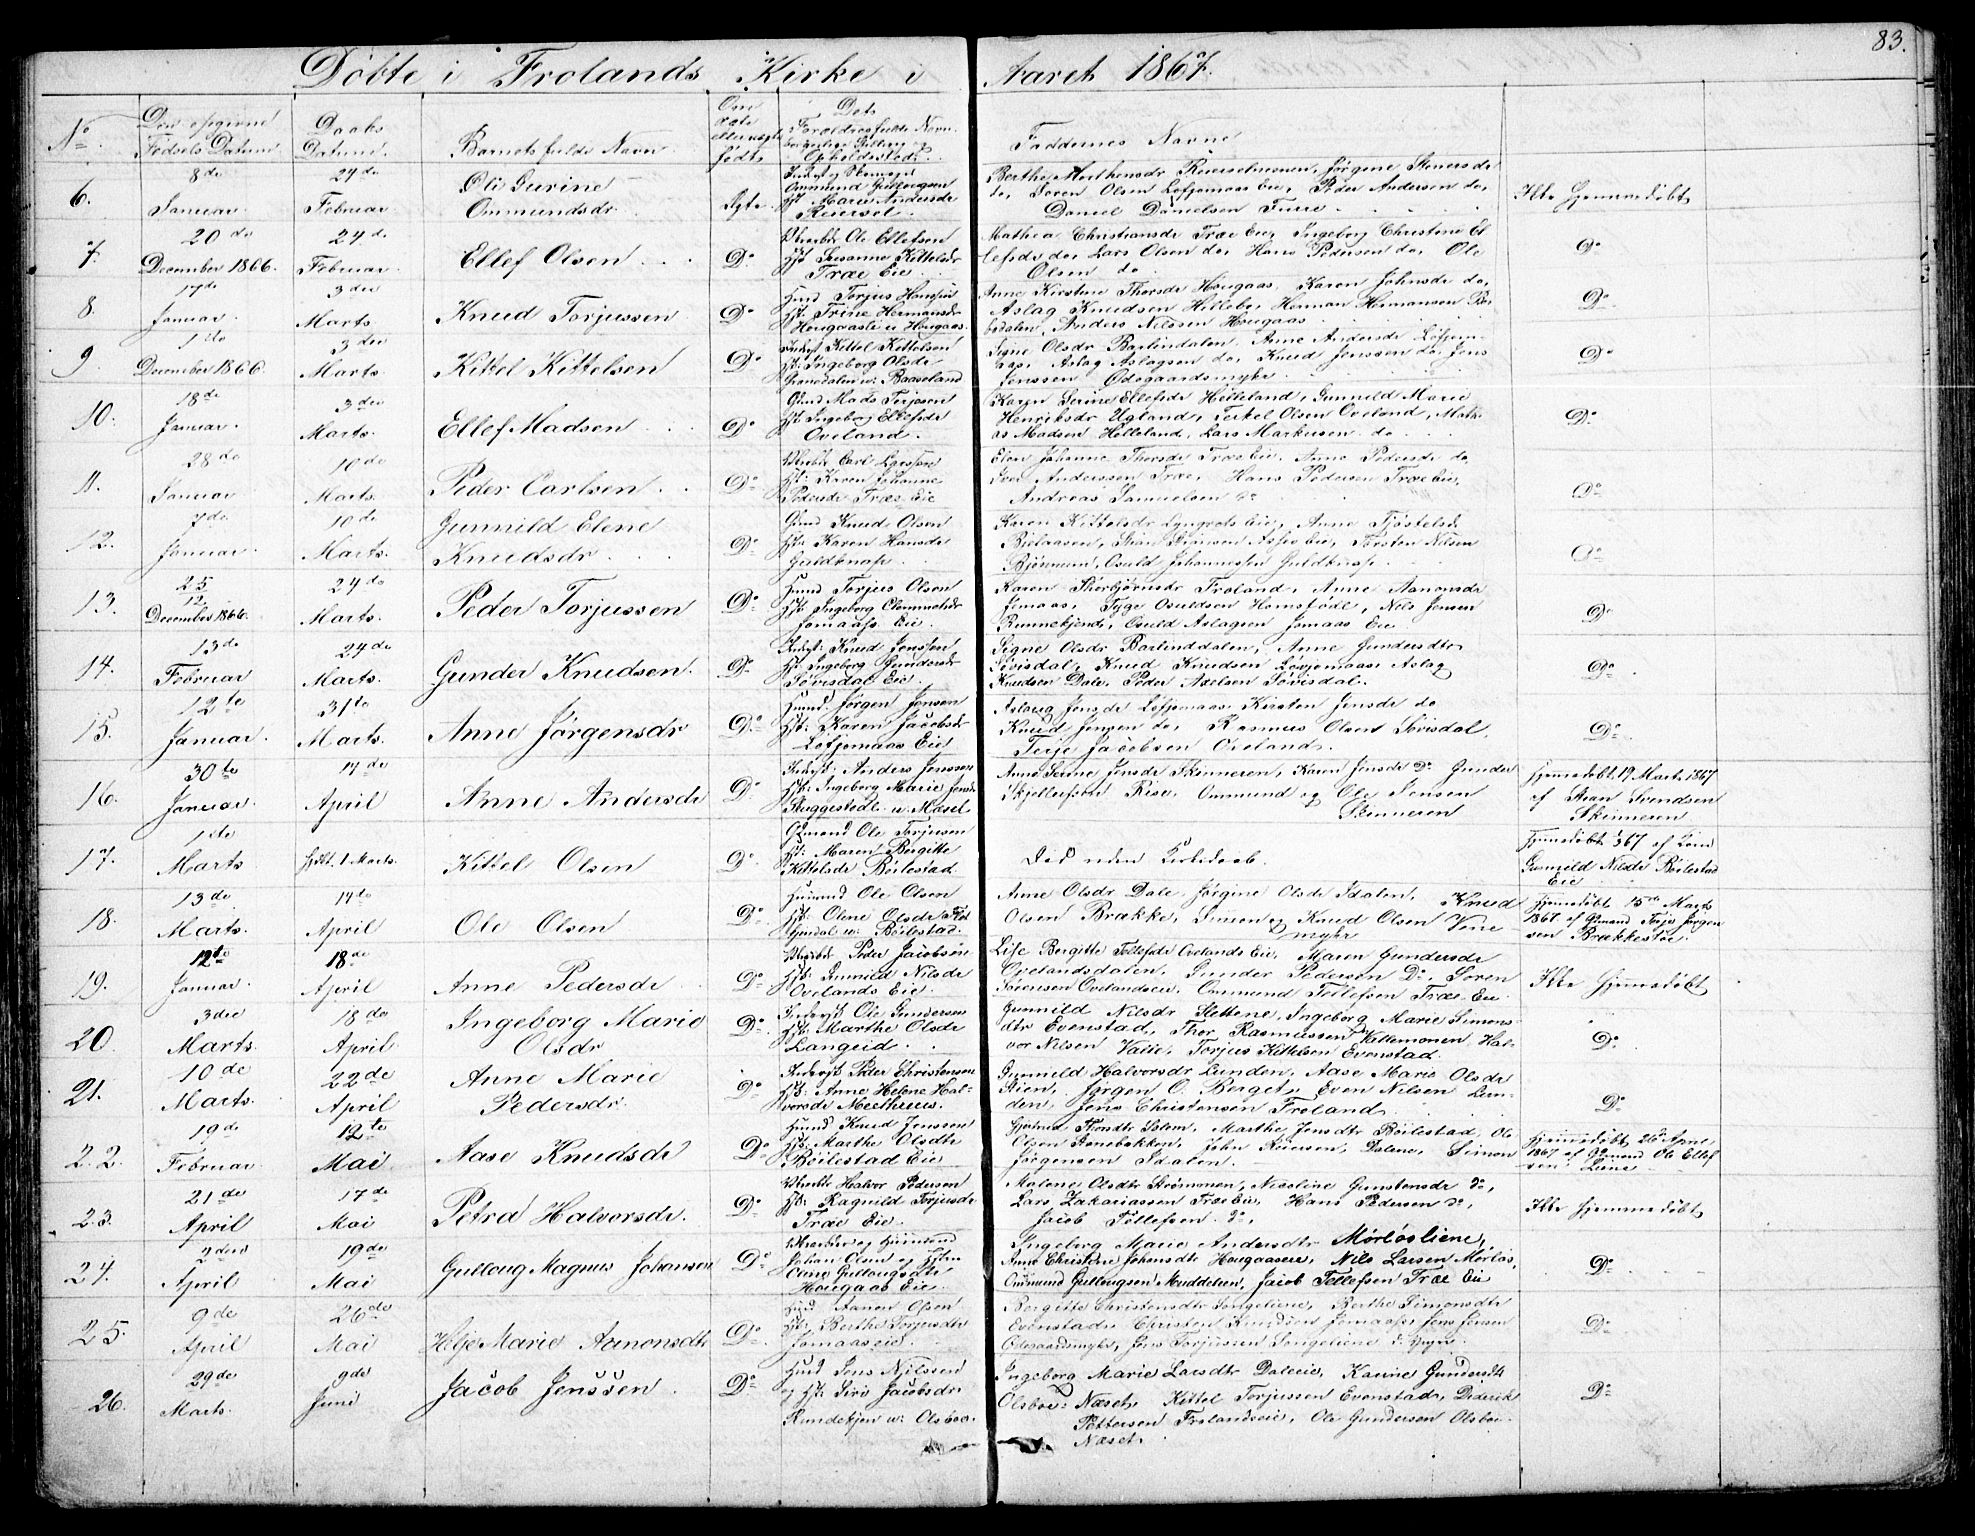 83.
Döbte i Frolands Kirke i Aaret 1867.
No
Den opgivne Fødsels Datum.
Daabs Datum.
Barnets fulde Navn
Om ægte eller uægte født.
Dets Forældres fulde Navn, borgerlige Stilling og Opholdssted.
Faddernes Navne
6.
8de Januar.
24de Februar.
Oli Gurine Ommundsdr.
Ægte.
Ommund Gulleugsen
Hst. Marie Andersdr
Reiersøl.
Søren Olsen Løfjomaas Eie, Peder Andersen do,
Daniel Danielsen Furre.
Ikke Hjemmedøbt
7.
20de December 1866.
24de Februar.
Ellef Olsen
Do
Ole Ellefsen
Hst Susanne Kittelsdr
Træe Eie.
Mathea Christiansdr Træe Eie, Ingeborg Christine El
lefsdr do, Lars Olsen do, Hans Pedersen do, Ole
Olsen do
Do
8.
17de Januar.
3die Marts.
Knud Torjussen
Do
Husmd Torjus Hansen
Hst. Trine Hermansdr
Anne Kirstine Thorsdr Hougaas, Karen Johnsdr do,
Aslag Knudsen Hillebo, Herman Hermansen
Anders Nilssen Hougaas
Do
9.
1ste December 1866.
3die Marts.
Kittel Kittelsen
Do
Kittel Kittelsen
Hst. Ingeborg Olsdr
Baaseland
Signe Olsdr Barlindalen, Anne Andersdr Løfjom-
aas, Aslag Aslagsen do, Knud Jenssen do, Jens
Jenssen Ødegaardsmyhr
Do
10.
18de Januar.
3die Marts.
Ellef Madsen
Do
Mads Terjesen
Hst. Ingeborg Ellefsdr
Oveland.
Karen Serine Ellefsdr Helleland, Gunnild Marie
Henriksdr Ugland, Terkel Olsen Oveland, Math-
as Madsen Helleland, Lars Markusen do
Do
11.
28de Januar
10de Marts.
Peder Carlsen
Do
Carl Larssen
Hst. Karen Johanne
Pedersdr Træe Eie
Elen Johanne Thorsdr Træe Eie, Anne Pedersdr do
Iver Anderssen Træe, Hans Pedersen Træe Eie,
Andreas Samuelsen do
Do
12.
7de Januar.
10de Marts.
Gunnild Elene Knudsdr
Do
Knud Olsen
Hst. Karen Hansdr
Guldknap
Torsten Nilsen
Osuld Johannessen Guldknap
Do
13.
25/12 December 1866.
24de Marts.
Peder Torjussen
Do
Husmd Torjus Olsen
Jomaas Eie
Karen Thorbjørnsdr Froland, Anne Aanonsdr
Jomaas, Tyge Osuldsen Homsfødt, Nils Jensen
Runnekjend, Osuld Aslagsen Jomaas Eie
Do
14.
13de Februar
24de Marts.
Gunder Knudsen.
Do
Knud Jenssen
Hst. Ingeborg Gundersdr
Sørisdal Eie.
Signe Olsdr Barlinddalen, Anne Gundersdtr
Sørisdal, Knud Knudsen Løvjomaas, Aslag
Knudsen Dale, Peder Axelsen Sørisdal.
Do
15.
12te Januar.
31te Marts.
Anne Jørgensdr
Do
Husmd. Jørgen Jensen
Hst. Karen Jacobsdr
Løfjomaas Eie
Aslaug Jensdr Løfjomaas, Kirsten Jensdr do
Knud Jensen do, Rasmus Olsen Sørisdal,
Terje Jacobsen Oveland.
Do
16.
30te Januar.
19de April
Anne Andersdr
Do
Anders Jenssen
Hst. Ingeborg Marie Jensdr
Skuggestedl. u. Mæsel
Anne Serine Jensdr Skinneren, Karen Jensdr Do Gunder
Skjellefsen Rise, Ommund og Ole Jensen
Skinneren
Hjemdøbt 19 Marts 1867
af Stian Svendsen
Skinneren
17.
1ste Marts
Hjdbt. 1 Marts.
Kittel Olsen
Do
Gmand Ole Torjusen
Hst. Maren Bergitte
Kittelsdr Böilestad
Död uden Kirkedaab.
Hjemdøbt
Gunnild Nilsdr Böilestad
Eie
18.
13de Marts.
19te April
Ole Olsen
Do
Husmd Ole Olsen
Hst. Olene Olsdr
u. Böilestad.
Anne Olsdr Dale, Jørgine Olsdr Idalen, Knud
Olsen Brække, Simon og Knud Olsen Vene
myhr
Hjemdøbt 15de Marts
1867 af Gmand Terje Jørgen
sen Brækkestøe.
19.
12te Januar.
18de April
Anne Pedersdr
Do
Peder Jacobsen
Hst. Gunnild Nilsdr
Ovelands Eie.
Lise Bergitte Tellefsdr Ovelands Eie, Maren Gundersdr
Ovelandsdalen, Gunder Pedersen Do, Søren
Sørensen Ovelandseie, Ommund Tellefsen Træe Eie
Ikke Hjemmedøbt
20.
3die Marts.
18de April
Ingeborg Marie Olsdr
Do
Ole Gundersen
Hst. Marthe Olsdr
Langeid
Gunnild Nilsdr Hettene, Ingeborg Marie Simons-
dtr Evenstad, Thor Rasmussen Vattemoen, Hal-
vor Nilsen Vatte, Torjus Kittelsen Evenstad
Do
21.
10de Marts.
22de April
Anne Marie Pedersdr
Do
Peder Christensen
Hst. Anne Helene Hal-
vorsdr Mælhuus.
Gunnild Halvorsdr Lunden, Aase Marie Olsdr
Stien, Jørgen O. Berget, Even Nilsen Lun-
den, Jens Christensen Froland
Do
22.
19de Februar
12te Mai
Aase Knudsdr
Do
Husmd Knud Jenssen
Hst. Marthe Olsdtr
Böilestad Eie
Marthe Jensdtr Böilestad, Ole
Olsen Stenebakken, Simon
Jørgensen Idalen.
Hjemdøbt 26 April
1867 af Gmand Ole Ellef
sen
23.
21de April
17de Mai
Petra Halvorsdr.
Do
Halvor Pedersen
Hst. Ragnild Torjusdr
Træe Eie.
Malene Olsdtr Nicoline Gunstensdr Do,
Lars Zakariassen Træe Eie, Hans Pedersen Do,
Jacob Tellefsen Do,
Ikke Hjemmedøbt
24.
2den April
19de Mai
Gulloug Magnus Johansen
Do
Johan Olsen og Hstru
Oline Gullougsdtr
Hougaas Eie
Ingeborg Marie Andersdtr Mörlösliene,
Anne Christine Johansdtr Hougaaseie, Nils Larsen Mörløs,
Ommund Gullougsen Muddelsen, Jacob Tellefsen Træe Eie
Do
25.
9de April
26de Mai
Helje Marie Aanonsdtr
Do
Husmd Aanon Olsen
Hst. Berthe Torjusdtr
Jomaaseie.
Bergitte Christensdtr Songeliene, Berthe Simonsdtr
Evenstad, Christen Knudsen Jomaas, Jens Jensen
Odegaardsmyhr, Jens Torjussen Songeliene
Do
26.
29de Marts.
9de Juni
Jacob Jenssen
Do
Husmd Jens Nilssen
og Hst. Siri Jacobsdr
Rundekjen u. Olsboe.
Ingeborg Marie Larsdtr Daleeie, Karine Gundersdtr
Olsboe Næset, Kittel Torjussen Evenstad, Diderik
Pettersen Frolandseie, Ole Gundersen Olsboe
Næset.
Do